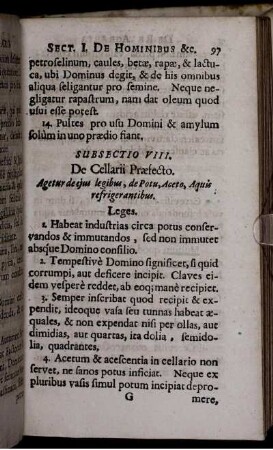 SECT. I. DE HOMINIBUS &c. 97
petroselinum, caules, betæ, rapæ, & lactuca,
ubi Dominus degit, & de his omnibus
aliqua seligantur pro semine. Neque negligatur
rapastrum, nam dat oleum quod
usui esse potest.
14. Pultes pro usu Domini & amylum
solùm in uno prædio fiant.
SUBSECTIO VIII.
De Cellarii Præfecto.
Agetur de ejus legibus, de Potu, Aceto, Aquis
refrigerantibus.
Leges.
1. Habeat industrias circa potus conservandos
& immutandos, sed non immutet
absque Domino consilio.
2. Tempestivè Domino significet, si quid
corrumpi, aut deficere incipit. Claves eidem
vesperè reddet, ab eoq; manè recipiet.
3. Semper inscribat quod recipit & expendit,
ideoque vasa seu tunnas habeat æquales,
& non expendat nisi per ollas, aut
dimidias, aut quartas, ita dolia, semidolia,
quadrantes.
4. Acetum & acescentia in cellario non
servet, ne sanos potus inficiat. Neque ex
pluribus vasis simul potum incipiat depro-
G mere,